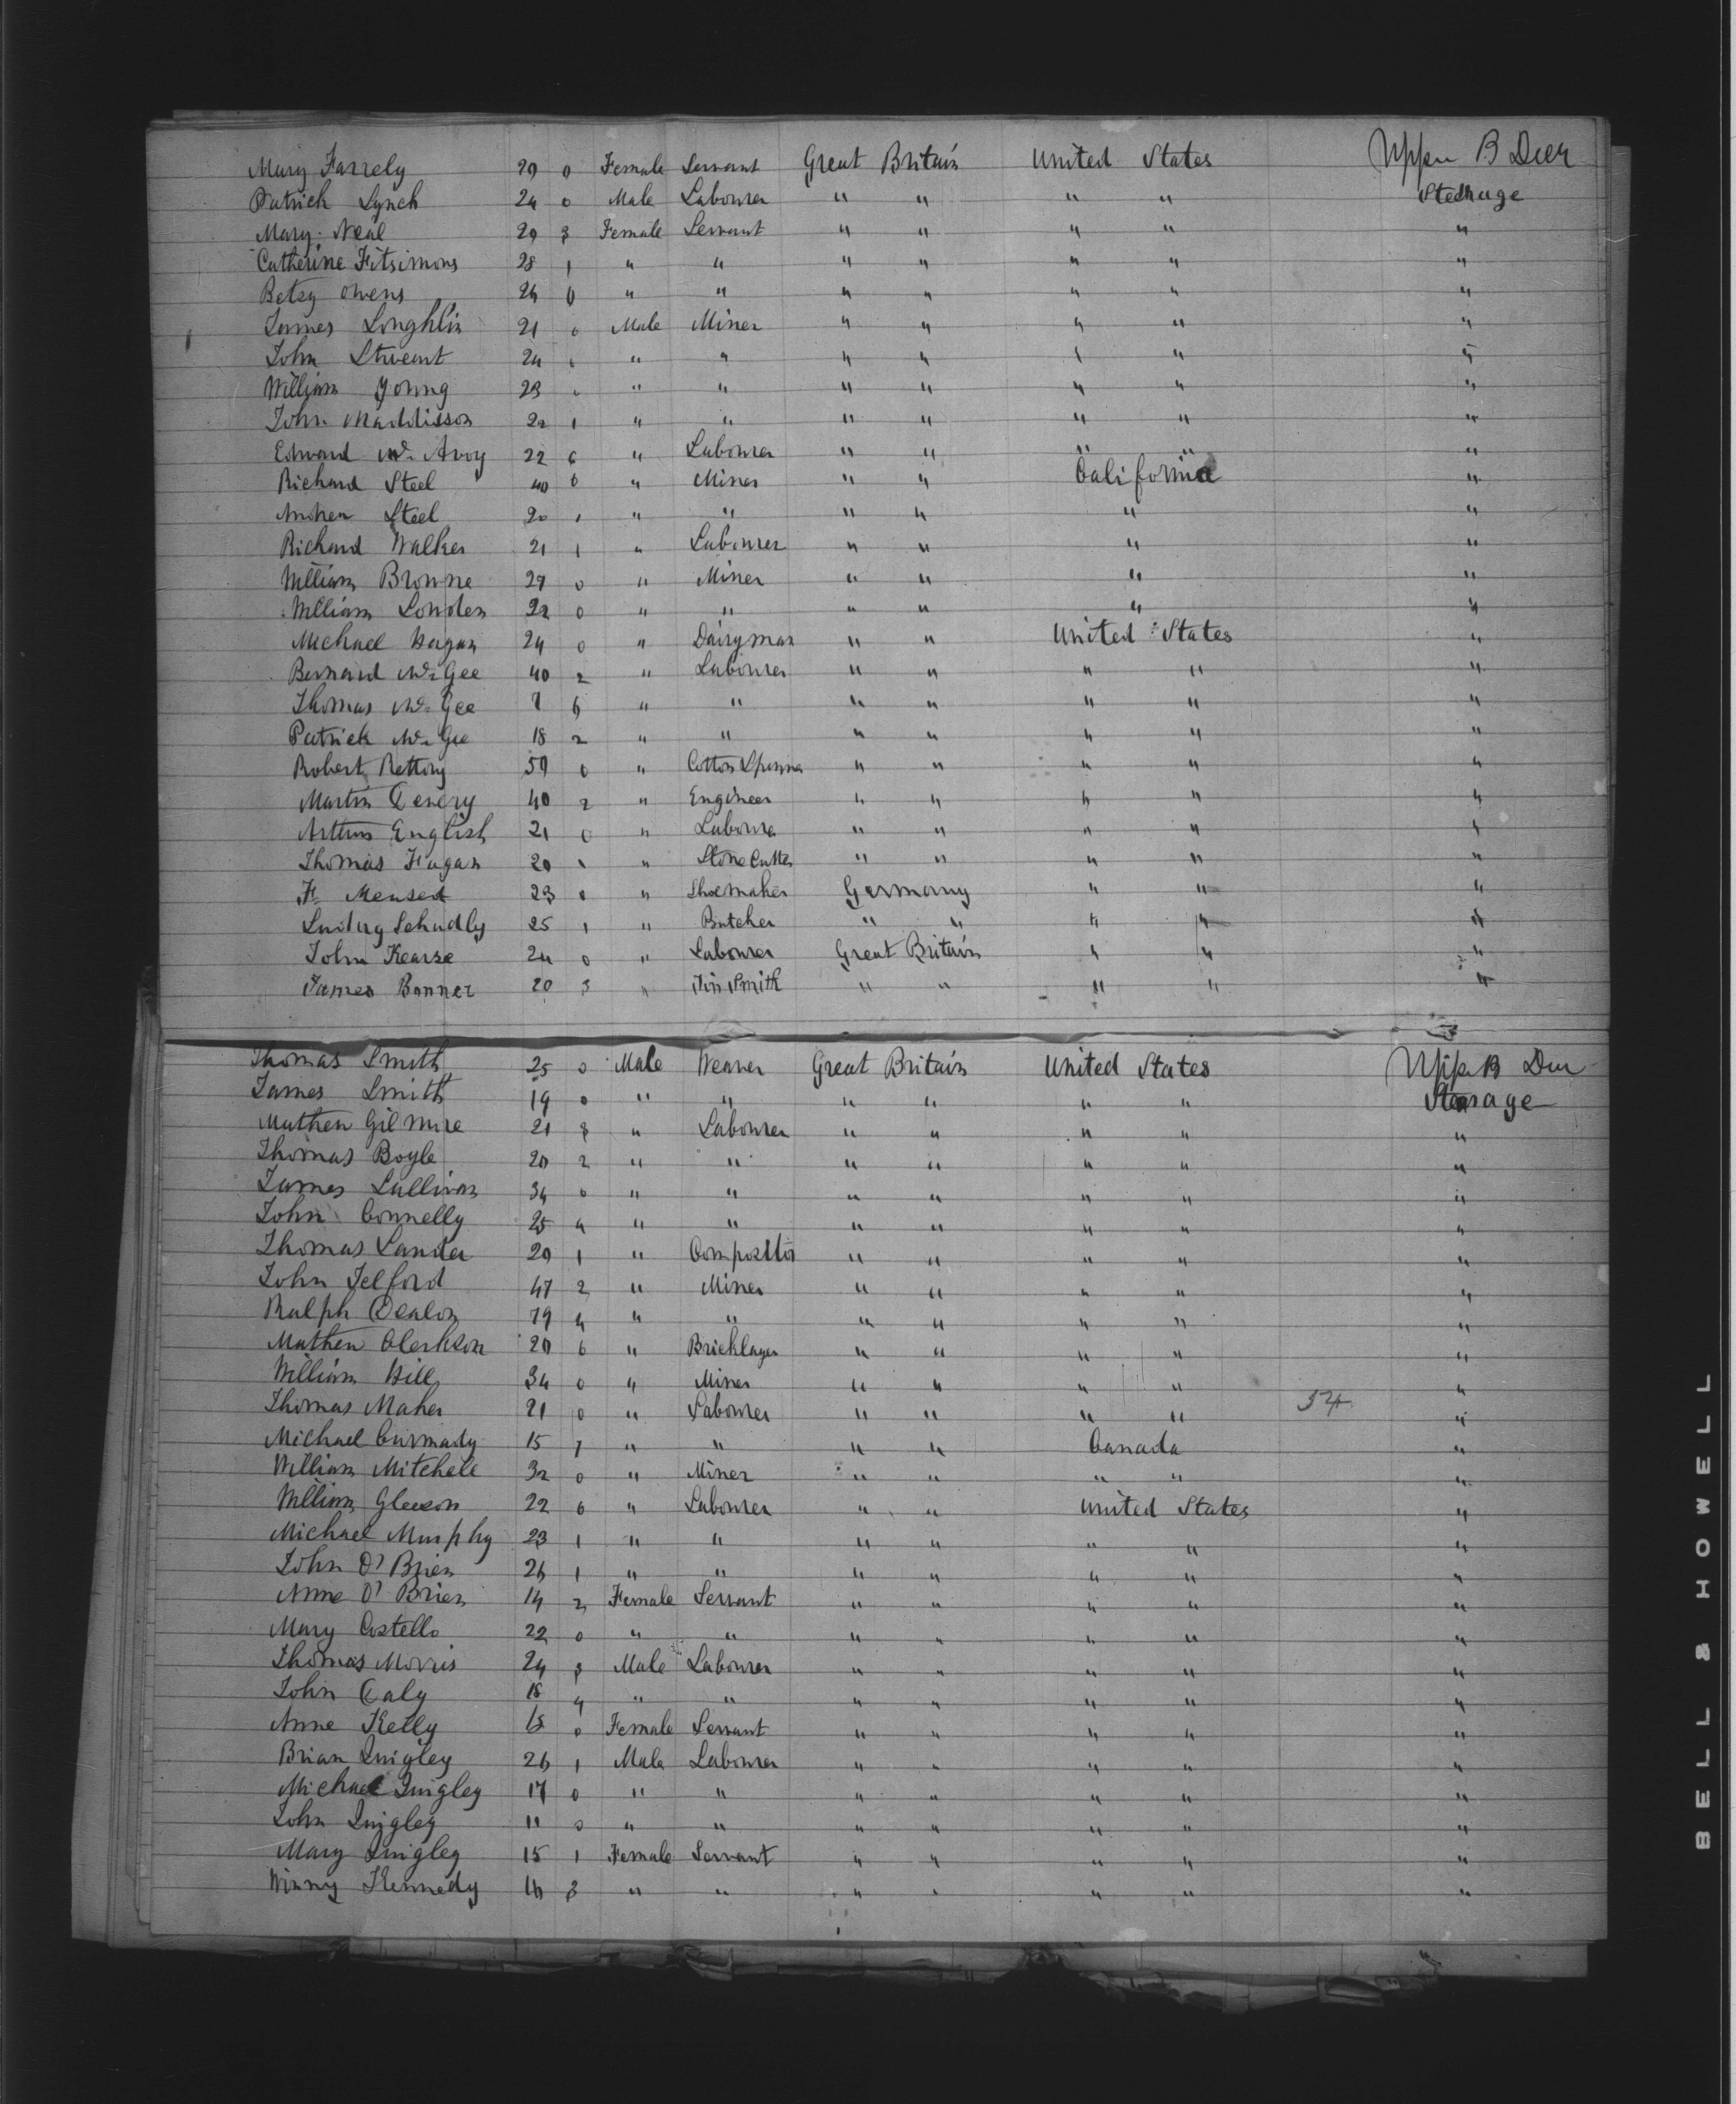 Mary Farrely 20 0 Female Servant Great Britain United States Upper B Deck
Patrick Lynch 24 0 Male Labourer " " " " Steerage
Mary Neal 20 3 Female Servant " " " " "
Catherine Fitsimons 28 1 " " " " " " "
Betsy Owens 26 0 " " " " " " "
James Loughlin 21 0 Male Miner " " " " "
John Stweart 24 0 " " " " " " "
William Young 23 0 " " " " " " "
John Maddisson 22 1 " " " " " " "
Edward Mc Avoy 22 6 " Labourer " " " " "
Richard Steel 40 0 " Miner " " California "
Steel 20 1 " " " " " "
Richard Walker 21 1 " Labourer " " " "
William Browne 27 0 " Miner " " " "
William Lowden 22 0 " " " " " "
Michael Hagan 24 0 " Dairyman " " United States "
Bernard Mc Gee 40 2 " Labourer " " " " "
Thomas Mc Gee 7 6 " " " " " " "
Patrick Mc Gee 18 2 " " " " " " "
Robert 59 0 " Cotton Spinner " " " " "
Martin Devery 40 2 " Engineer " " " " "
Arthur English 21 0 " Labourer " " " " "
Thomas Fagan 20 1 " Stone Cutter " " " " "
F. 23 0 " Shoemaker Germany " " "
Ludwig Schudly 25 1 " Butcher " " " " "
John Kearse 24 0 " Labourer Great Britain " " "
James Bonner 20 3 " Tin Smith " " " " "
Thomas Smith 25 0 Male Weaver Great Britain United States Upp B Deck
James Smith 19 0 " " " " " " Steerage
Mathew Gilmore 21 3 " Labourer " " " " "
Thomas Boyle 20 2 " " " " " " "
James Sullivan 34 0 " " " " " " "
John Connelly 25 4 " " " " " " "
Thomas Lander 20 1 " Compositor " " " " "
John Telford 47 2 " Miner " " " " "
Ralph Dealon 19 4 " " " " " " "
Mathew Clarkson 20 6 " Bricklayer " " " " "
William Hill 34 0 " Miner " " " " "
Thomas Maher 21 0 " Labourer " " " " 54 "
Michael 15 7 " " " " Canada "
William Mitchell 32 0 " Miner " " " " "
William Gleeson 22 6 " Labourer " " United States "
Michael Murphy 23 1 " " " " " " "
John O'Brien 26 1 " " " " " " "
Anne O'Brien 14 2 Female Servant " " " " "
Mary Costello 22 0 " " " " " " "
Thomas Morris 24 3 Male Labourer " " " " "
John Daly 18 4 " " " " " " "
Anne Kelly 18 0 Female Servant " " " " "
Brian Quigley 26 1 Male Labourer " " " " "
Michael Quigley 17 0 " " " " " " "
John Quigley 11 0 " " " " " " "
Mary Quigley 15 1 Female Servant " " " " "
Winny Kennedy 16 3 " " " " " " "
BELL & HOWELL